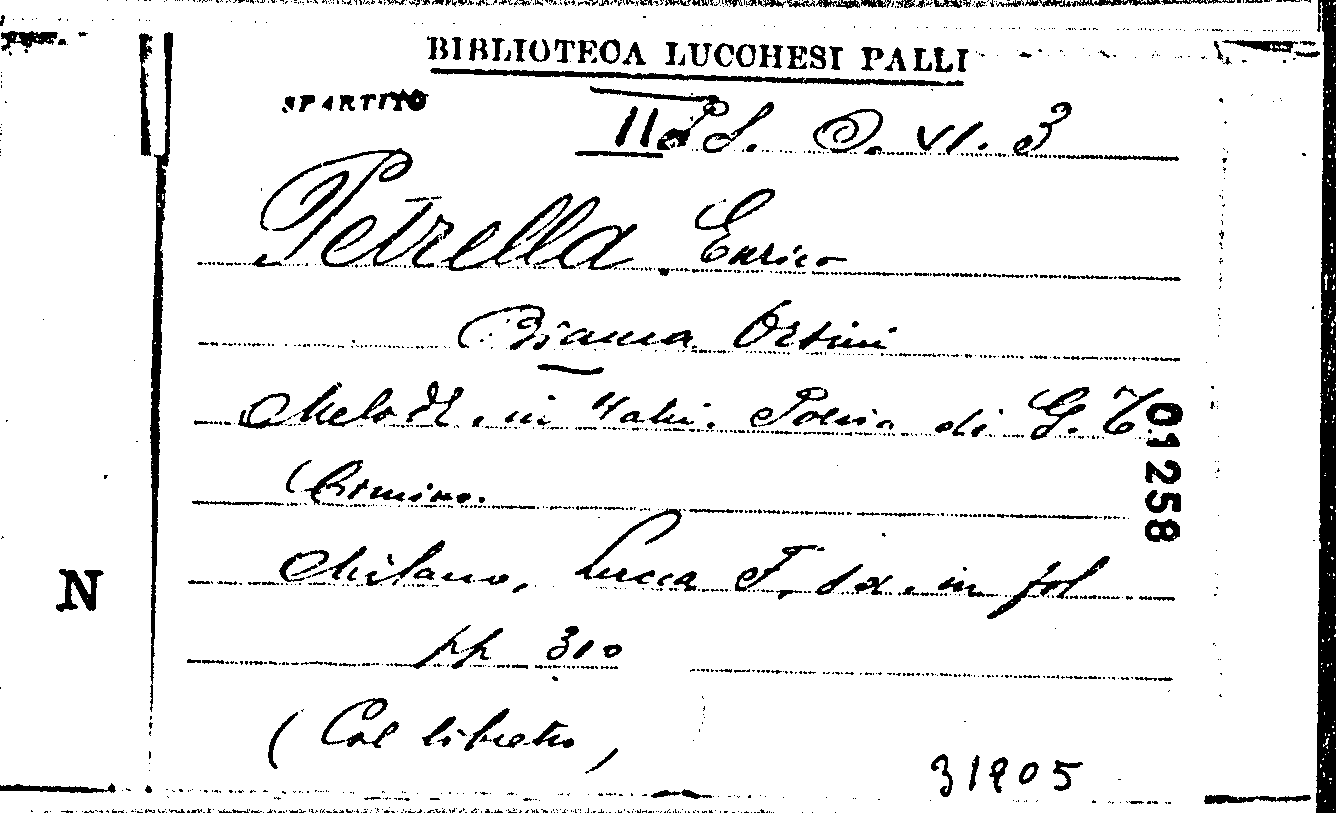 BIBLIOTECA LUCCHESI PALLI
SPARTITO
S. O. VI. 3
Petrella Enrico
Bianca Orsini
Melodr. in 4 atti. Poesia di G. T.
Cimino.
Milano, Lucca F. sd. in fol
pp 310
(Col libretto)
01258
N
31905